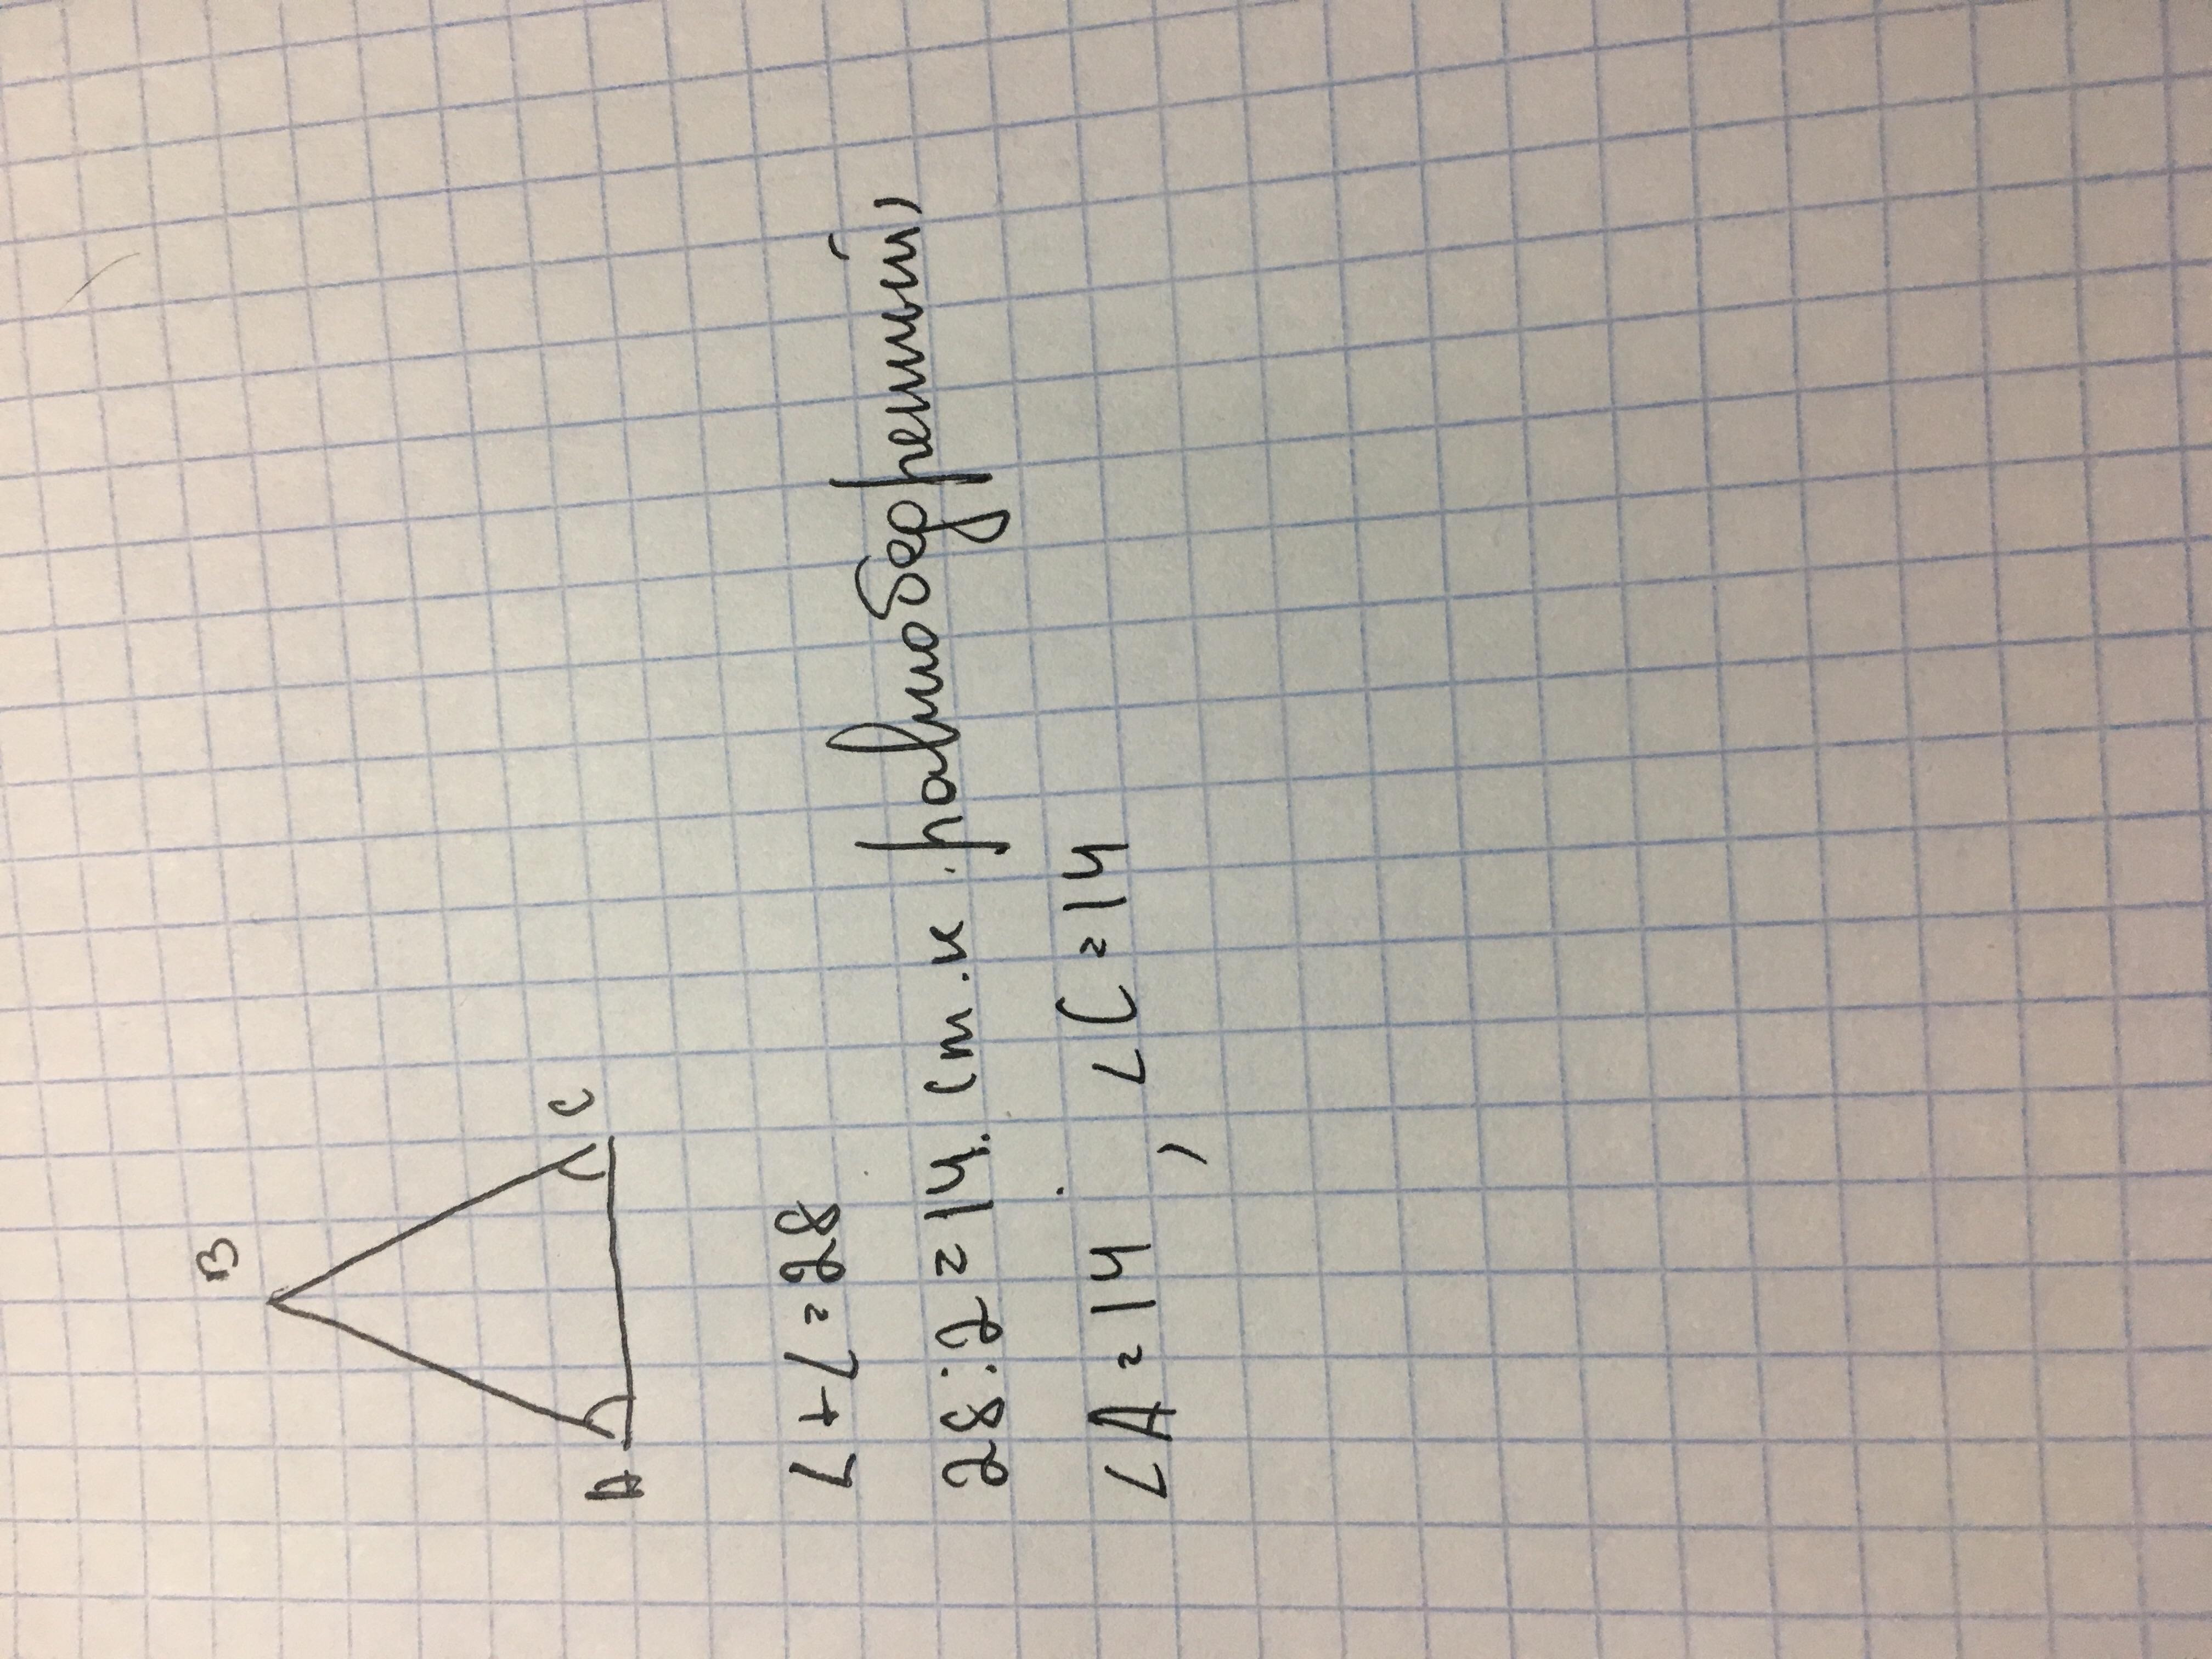 B
A C
∠ + ∠ = 28
28 : 2 = 14. (т.к. равнобедренный)
∠A = 14 , ∠C = 14